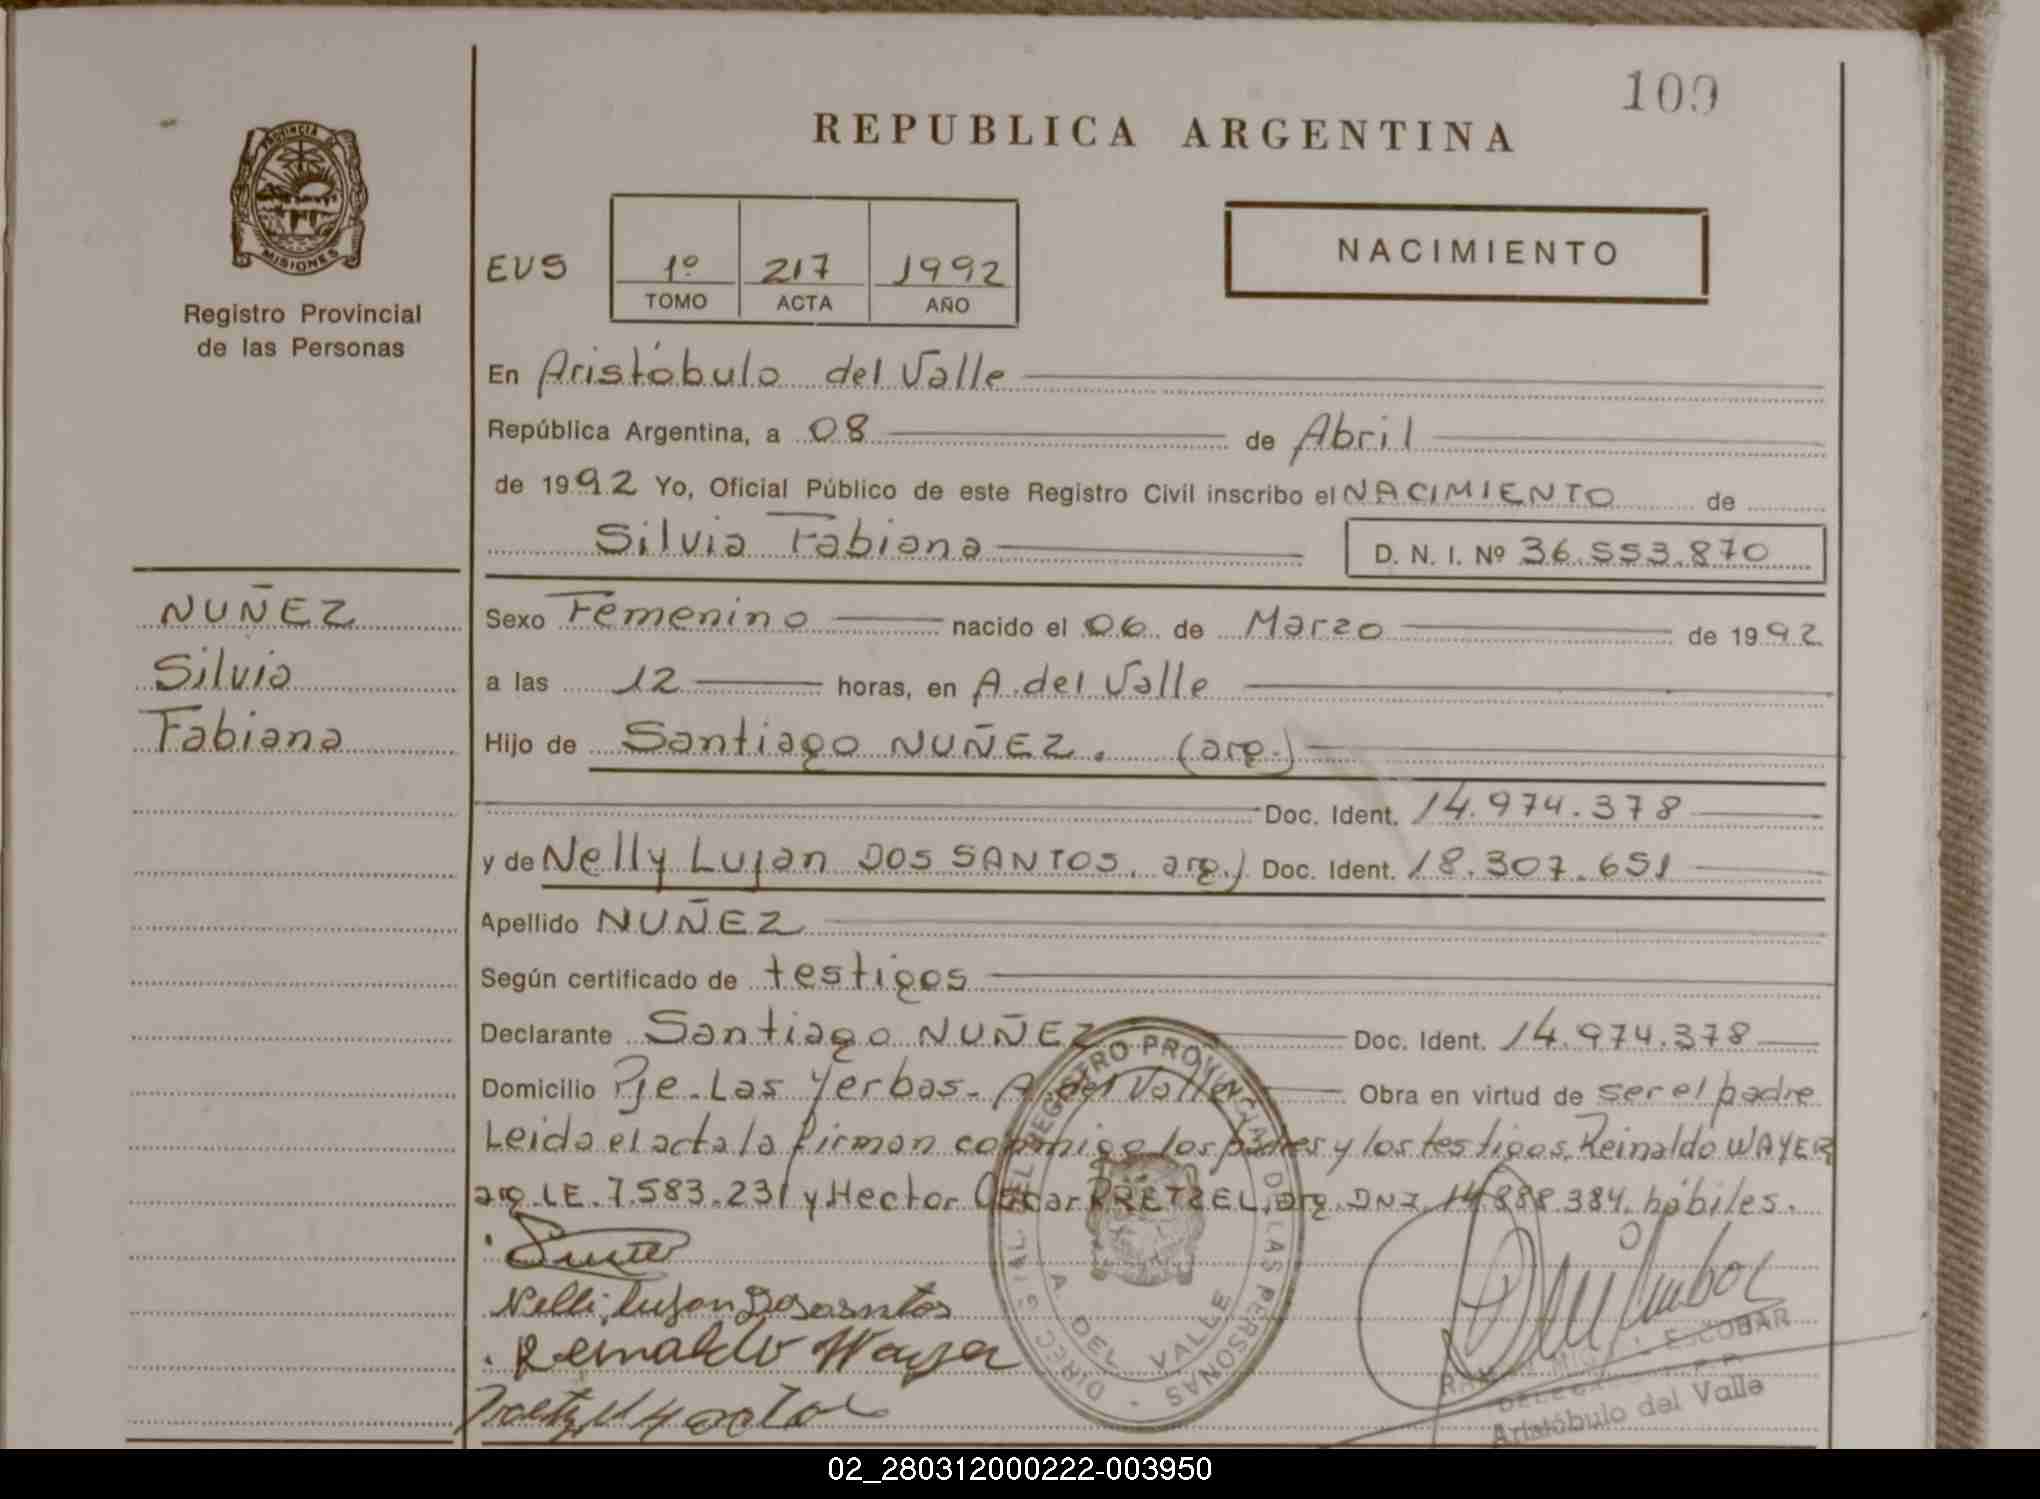 109
PROVINCIA DE
MISIONES
Registro Provincial
de las Personas
REPUBLICA ARGENTINA
EVS
1º 217 1992
TOMO ACTA AÑO
NACIMIENTO
En Aristóbulo del Valle
República Argentina, a 08 de Abril
de 1992 Yo, Oficial Público de este Registro Civil inscribo el NACIMIENTO de
Silvia Fabiana D. N. I. Nº 36.553.870
NUÑEZ
Silvia
Fabiana
Sexo Femenino nacido el 06 de Marzo de 1992
a las 12 horas, en A. del Valle
Hijo de Santiago NUÑEZ. (arg.)
Doc. Ident. 14.974.378
y de Nelly Lujan DOS SANTOS, arg.) Doc. Ident. 18.307.651
Apellido NUÑEZ
Según certificado de testigos
Declarante Santiago NUÑEZ Doc. Ident. 14.974.378
Domicilio Pje. Las Yerbas - A. del Valle Obra en virtud de ser el padre
Leida el acta la firman conmigo los padres y los testigos, Reinaldo WAYER
arg. LE. 7.583.231 y Hector Oscar PRETZEL, arg. DNI 14.888.384. hábiles.
Nelli lujan Dosasntos
Reinaldo Wayer
DIREC REGISTRO PROVINCIAL DE LAS PERSONAS
A DEL VALLE
ESCOBAR
Aristóbulo del Valle
02_280312000222-003950